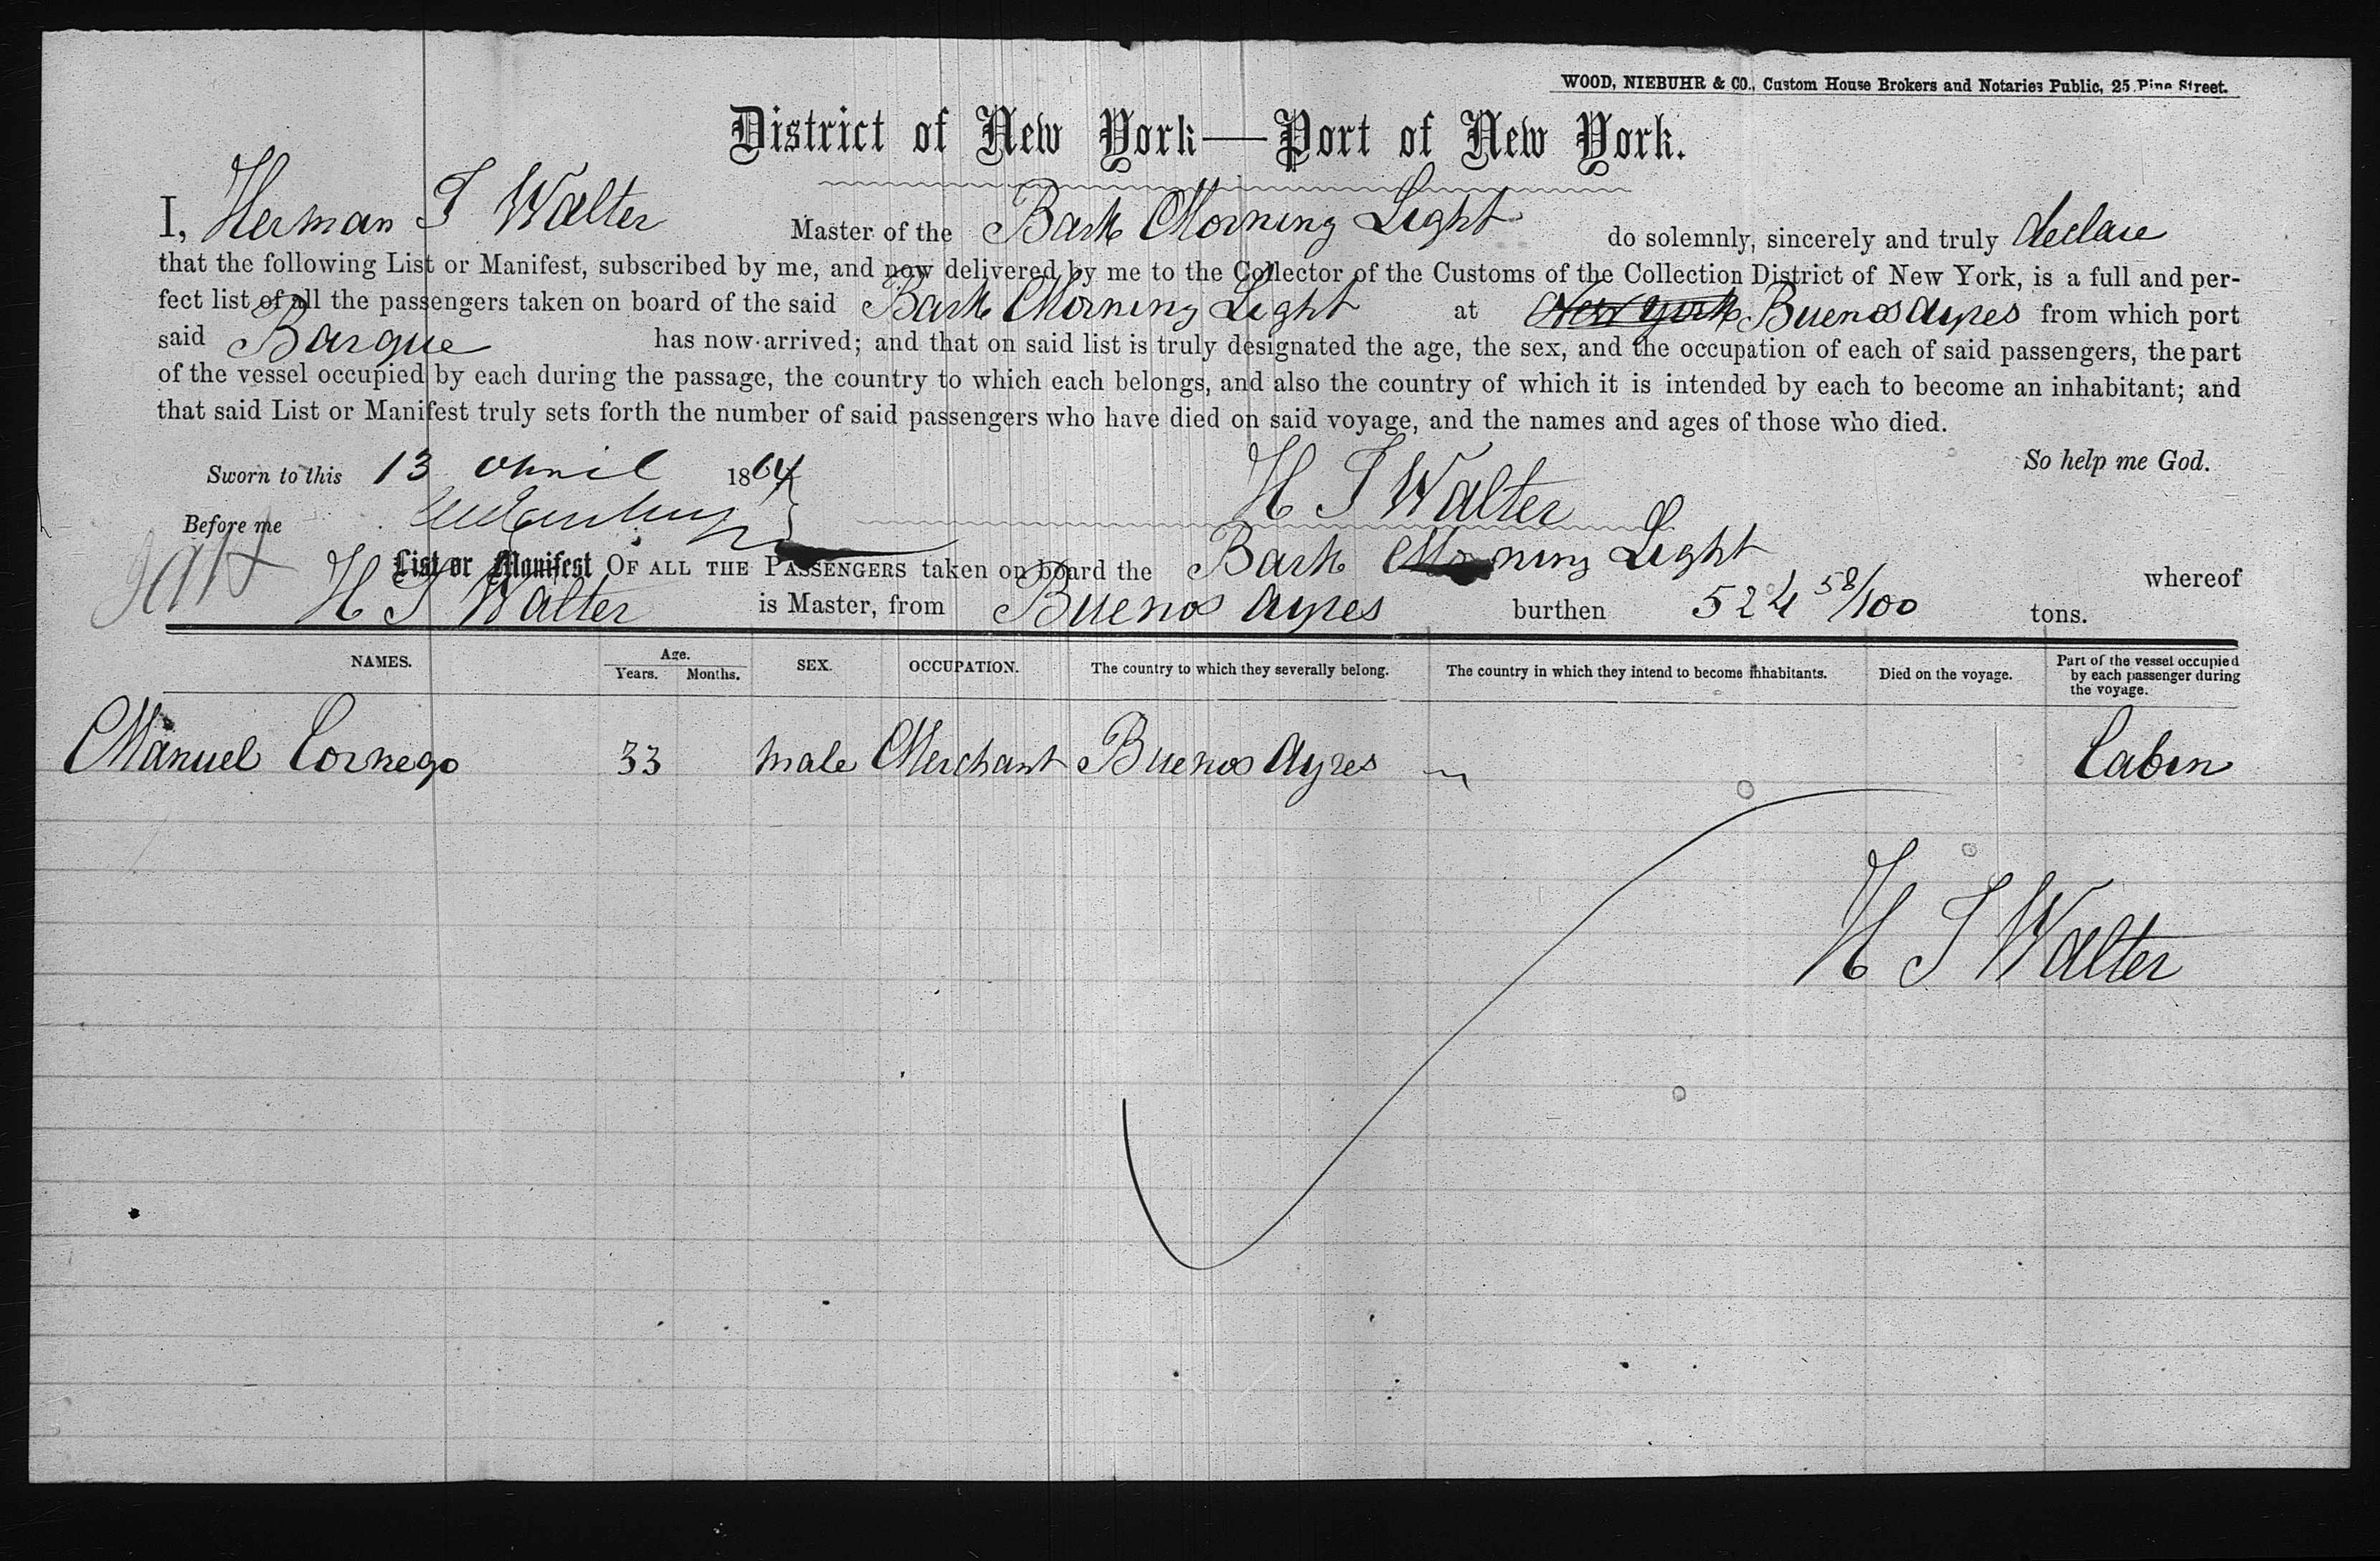 WOOD, NIEBUHR & CO., Custom House Brokers and Notaries Public, 25 Pine Street.
District of New York—Port of New York.
I, Herman T Walter Master of the Bark Morning Light do solemnly, sincerely and truly declare
that the following List or Manifest, subscribed by me, and now delivered by me to the Collector of the Customs of the Collection District of New York, is a full and per-
fect list of all the passengers taken on board of the said Bark Morning Light at New York Buenos Ayres from which port
said Barque has now arrived; and that on said list is truly designated the age, the sex, and the occupation of each of said passengers, the part
of the vessel occupied by each during the passage, the country to which each belongs, and also the country of which it is intended by each to become an inhabitant; and
that said List or Manifest truly sets forth the number of said passengers who have died on said voyage, and the names and ages of those who died.
Sworn to this 13 April 1864 H T Walter So help me God.
Before me
List or Manifest OF ALL THE PASSENGERS taken on board the Bark Morning Light whereof
H T Walter is Master, from Buenos Ayres burthen 524 58/100 tons.
NAMES. Age. Years. Months. SEX. OCCUPATION. The country to which they severally belong. The country in which they intend to become inhabitants. Died on the voyage. Part of the vessel occupied by each passenger during the voyage.
Manuel Cornego 33 male Merchant Buenos Ayres " Cabin
H T Walter